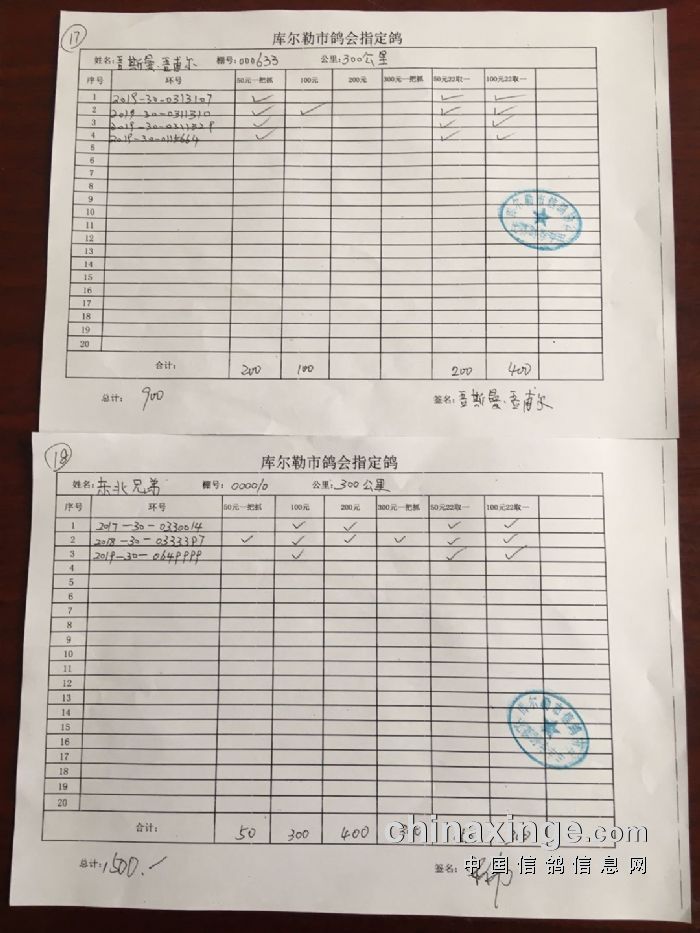 17
库尔勒市鸽会指定鸽
姓名: 吾斯曼·吾甫尔 棚号: 000633 公里: 300公里
序号 环号 50元一把抓 100元 200元 300元一把抓 50元22取一 100元22取一
1 2019-30-0313107 ✓ ✓ ✓
2 2019-30-0311310 ✓ ✓ ✓ ✓
3 2019-30-0311329 ✓ ✓ ✓
4 ✓ ✓ ✓
5
6
7
8
9
10
11
12
13
14
15
16
17
18
19
20
合计: 200 100 200 400
总计: 900 签名: 吾斯曼·吾甫尔
18
库尔勒市鸽会指定鸽
姓名: 东北兄弟 棚号: 000010 公里: 300公里
序号 环号 50元一把抓 100元 200元 300元一把抓 50元22取一 100元22取一
1 2017-30-0330014 ✓ ✓ ✓ ✓
2 2018-30-0333397 ✓ ✓ ✓ ✓ ✓ ✓
3 2019-30-0649999 ✓ ✓ ✓
4
5
6
7
8
9
10
11
12
13
14
15
16
17
18
19
20
合计: 50 300 400
chinaxinge.com
总计: 1500.- 签名:
中国信鸽信息网